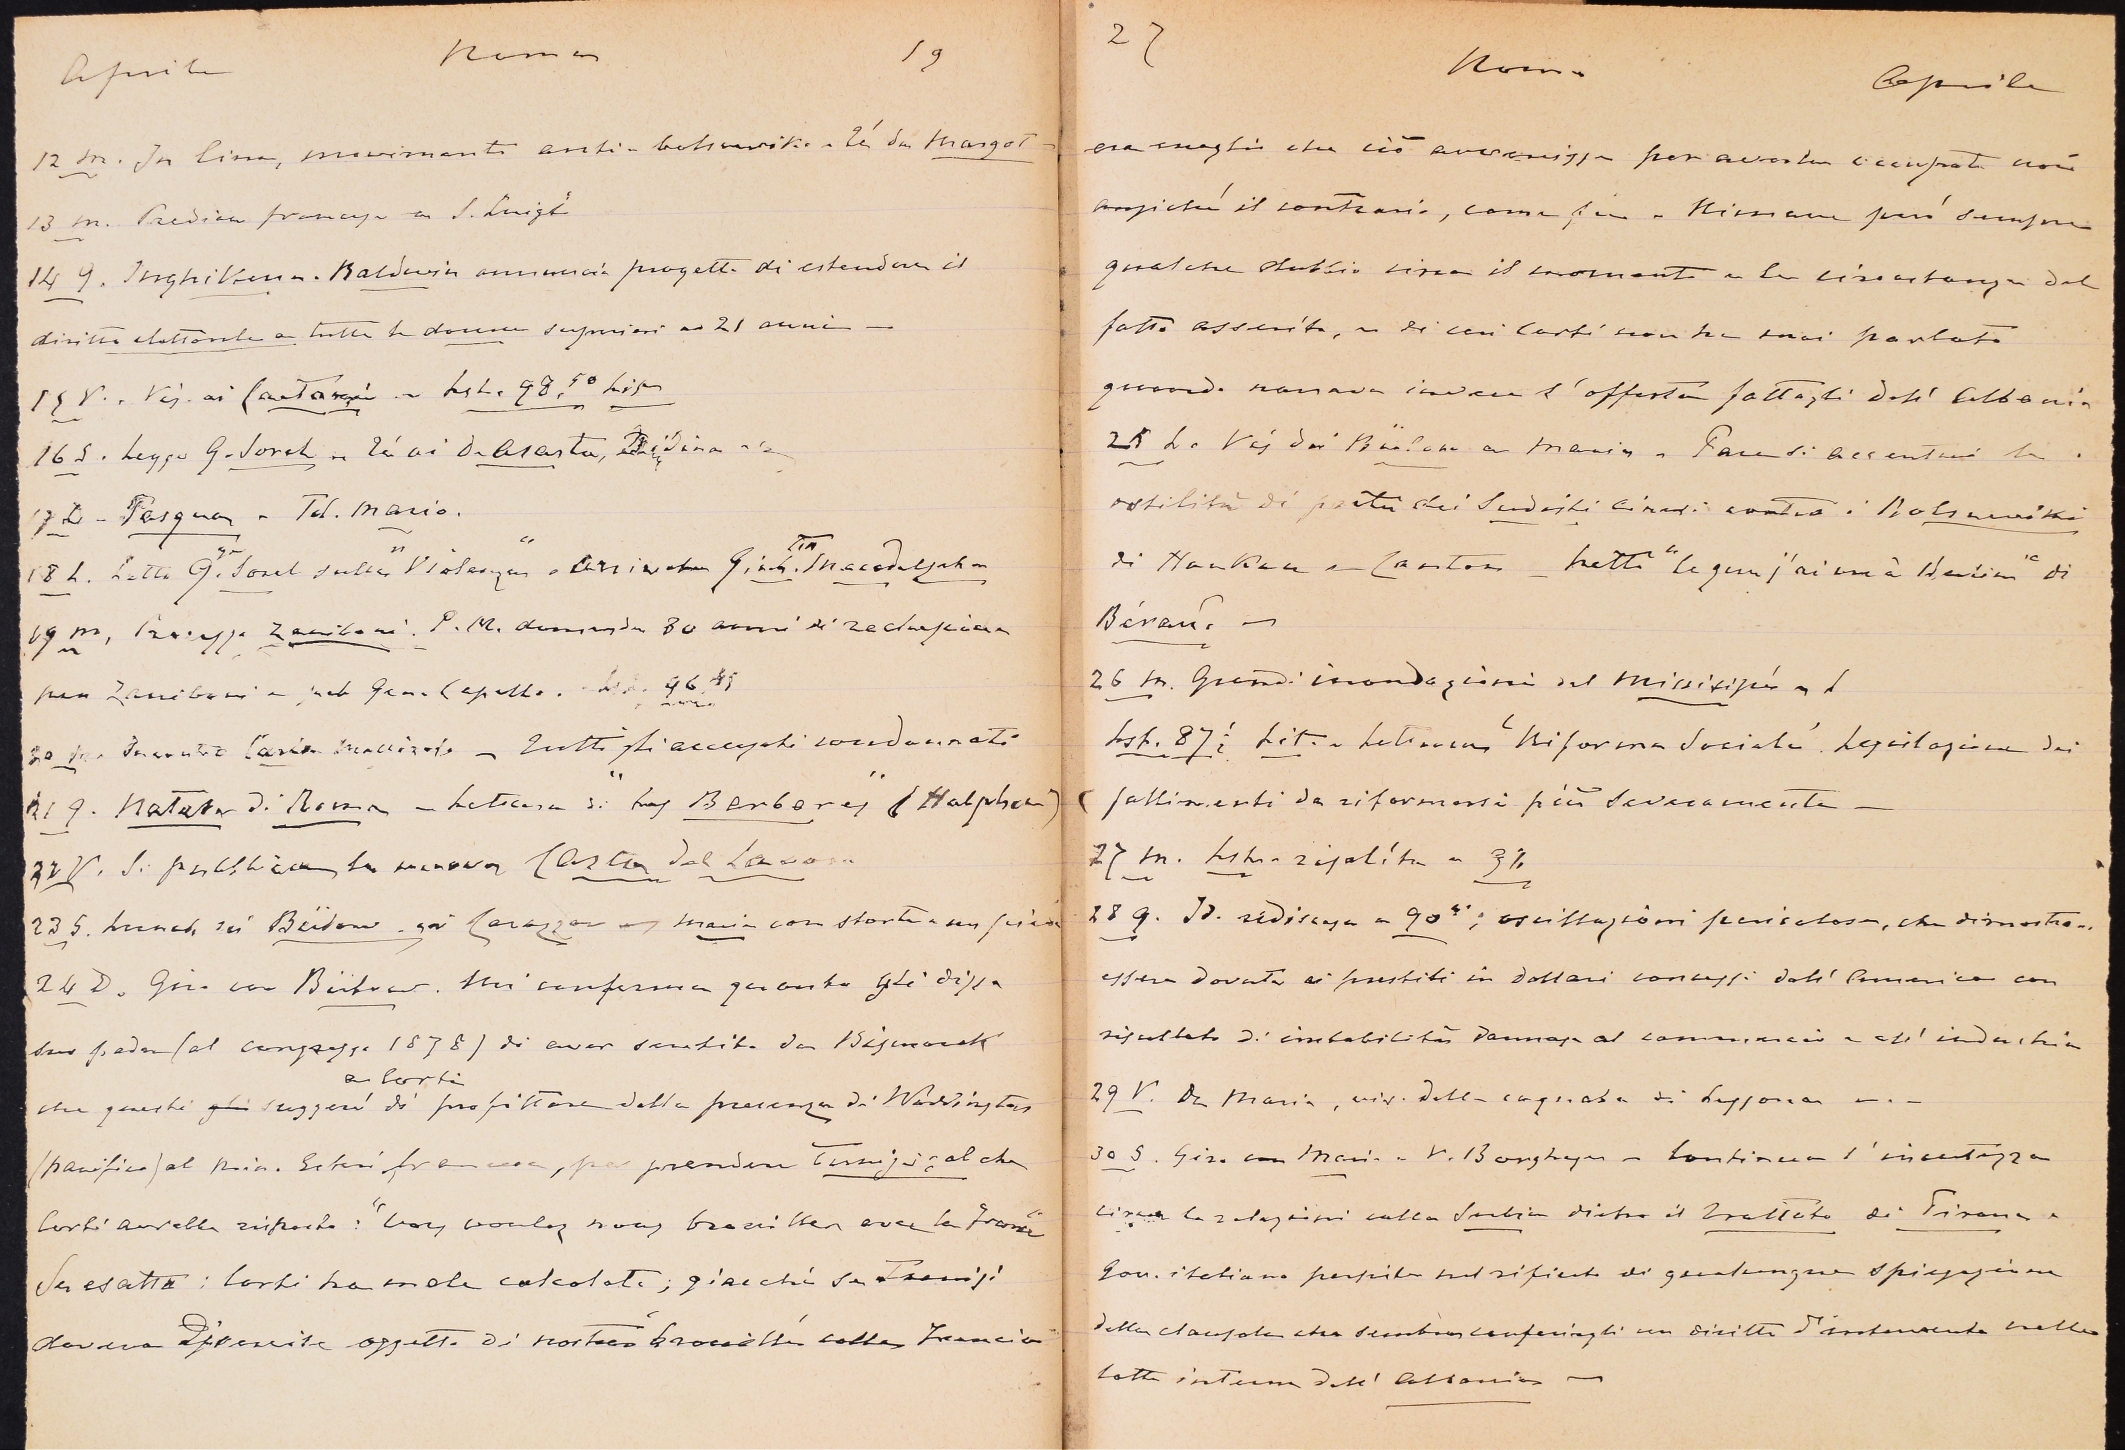 Aprile Roma 19
12 M. In Cina, movimento anti-bolsceviko - Tè da Margot -
13 M. Predica francese a S. Luigi
14 G. Inghilterra. Baldwin annuncia progetto di estendere il
diritto elettorale a tutte le donne superiori ai 21 anni —
15 V. Vis. ai Caetani - Lst. 98,50 Lire
16 S. Leggo G. Sorel - Tè ai De Asarta,
17 D - Pasqua - Tel. Mario.
18 L. Letto G. Sorel sulla "Violenza" - arrivata
19 M, Processo Zaniboni. P. M. domanda 30 anni di reclusione
per Zaniboni e pel Gen. Capello. Lst. 96,45
20 M. Incontro — Tutti gli accusati condannati
21 G. Natale di Roma - Lettura di "Les Barbares" (Halphen)
22 V. Si pubblica la nuova Carta del Lavoro
23 S. Lunch dei Bülow coi Carazzov Maria con storta a un piede
24 D. Giro con Bülow. Mi conferma quanto gli disse
suo padre (al congresso 1878) di aver sentito da Bismarck
a Corti
che questi gli suggerì di profittare della presenza di Waddington
(pacifico) al Min. Esteri francese, per prendere Tunisi; al che
Corti avrebbe risposto: "Vous voulez nous brouiller avec la France"
Se esatto: Corti ha male calcolato; giacchè se Tunisi
doveva divenire oggetto di nostro brouille colla Francia
27 Roma Aprile
era meglio che ciò avvenisse per averla occupata noi
anzichè il contrario, come fu - Rimane però sempre
qualche dubbio circa il momento e la circostanza del
fatto asserito, e di cui Corti non ha mai parlato
quando narrava invece l'offerta fattagli dell'Albania
25 L. Vis dei Bülow a Maria - Pare si accentui la
ostilità di parte dei Sudisti cinesi contro i Bolsceviki
di Hankau e Canton — Letto "Ce que j'ai vu à Berlin" di
Béraud —
26 M. Grandi inondazioni del Missisipì -
Lst. 87½ Lit. - Lettura "Riforma Sociale" Legislazione dei
fallimenti da riformarsi più severamente —
27 M. Lst. risalita a 93
28 G. Id. ridiscesa a 90; oscillazioni pericolose, che dimostra
essere dovute ai prestiti in dollari concessi dall'America con
risultato di instabilità dannosa al commercio e all'industria
29 V. Da Maria, vis. della cognata di
30 S. Giro con Maria a V. Borghese - Continua l'incertezza
circa le relazioni colla Serbia dietro il Trattato di Tirana -
Gov. italiano persiste nel rifiuto di qualunque spiegazione
della clausola che sembra conferirgli un diritto d'intervento nelle
lotte interne dell'Albania —